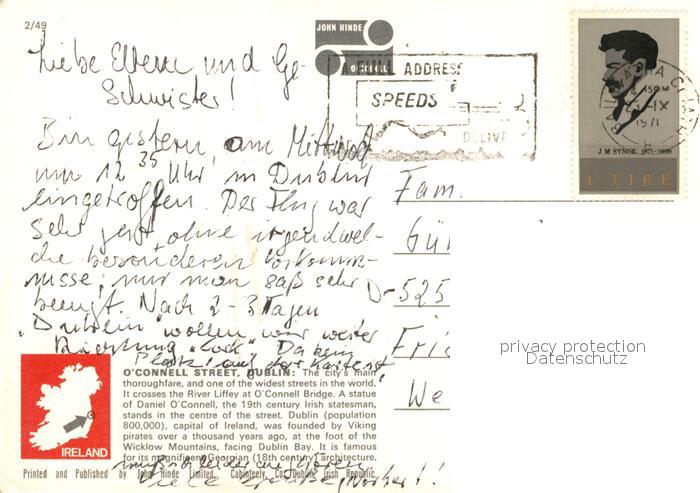 2/49
JOHN HINDE
ORIGINAL
FULL ADDRESS
SPEEDS
DELIVE
IX
1971
J M SYNGE 1871-1909
4 EIRE
Liebe Eltern und Ge-
schwister!
Bin gestern, am Mittwoch
um 12 35 Uhr in Dublin
eingetroffen. Der Flug war
sehr gut, ohne irgendwel-
che besonderen Vorkomm-
nisse, nur man saß sehr
beengt. Nach 2-3 Tagen
"Dublin" wollen wir weiter
Richtung "Cork". Da kein
Platz auf der Karte ist,
muß ich leider aufhören
Viele
Fam.
Gün
D-525
Frie
We
privacy protection
Datenschutz
IRELAND
O'CONNELL STREET, DUBLIN: The city's main
thoroughfare, and one of the widest streets in the world.
It crosses the River Liffey at O'Connell Bridge. A statue
of Daniel O'Connell, the 19th century Irish statesman,
stands in the centre of the street. Dublin (population
800,000), capital of Ireland, was founded by Viking
pirates over a thousand years ago, at the foot of the
Wicklow Mountains, facing Dublin Bay. It is famous
for its magnificent Georgian (18th century) architecture.
Printed and Published by John Hinde Limited, Cabinteely, Co. Dublin, Irish Republic.